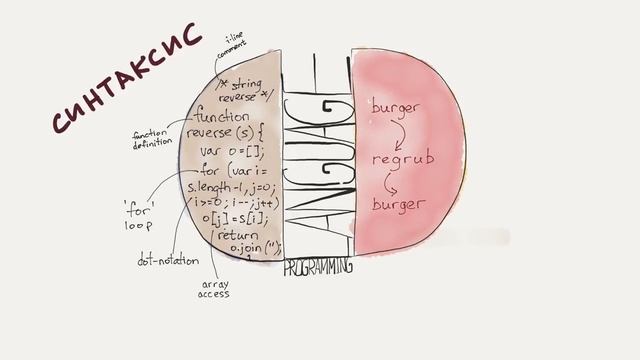 СИНТАКСИС
i-line
comment
/* string
reverse */
function
reverse (s) {
var o=[];
for (var i=
s.length-1, j=0;
i>=0; i--; j++)
o[j]=s[i];
return
o.join('');
}
function
definition
'for'
loop
dot-notation
array
access
LANGUAGE
PROGRAMMING
burger
regrub
burger